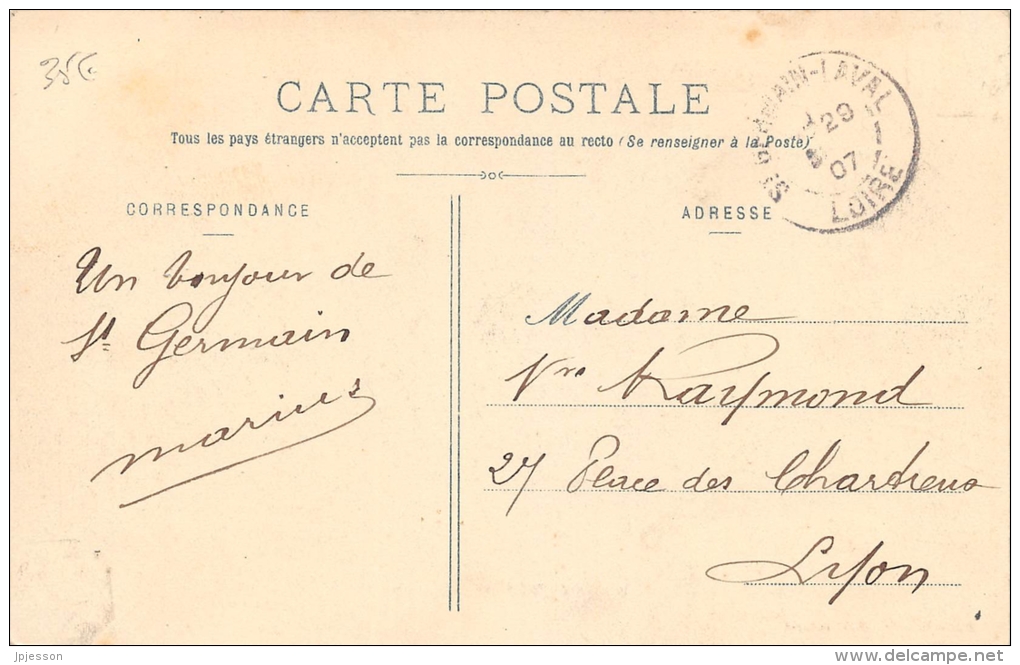 35€
CARTE POSTALE
Tous les pays étrangers n'acceptent pas la correspondance au recto (Se renseigner à la Poste)
ST GERMAIN-LAVAL
29
07
LOIRE
CORRESPONDANCE
Un bonjour de
St Germain
Marius
ADRESSE
Madame
Vve Raymond
27 Place des Chartreux
Lyon
jpjesson
www.delcampe.net